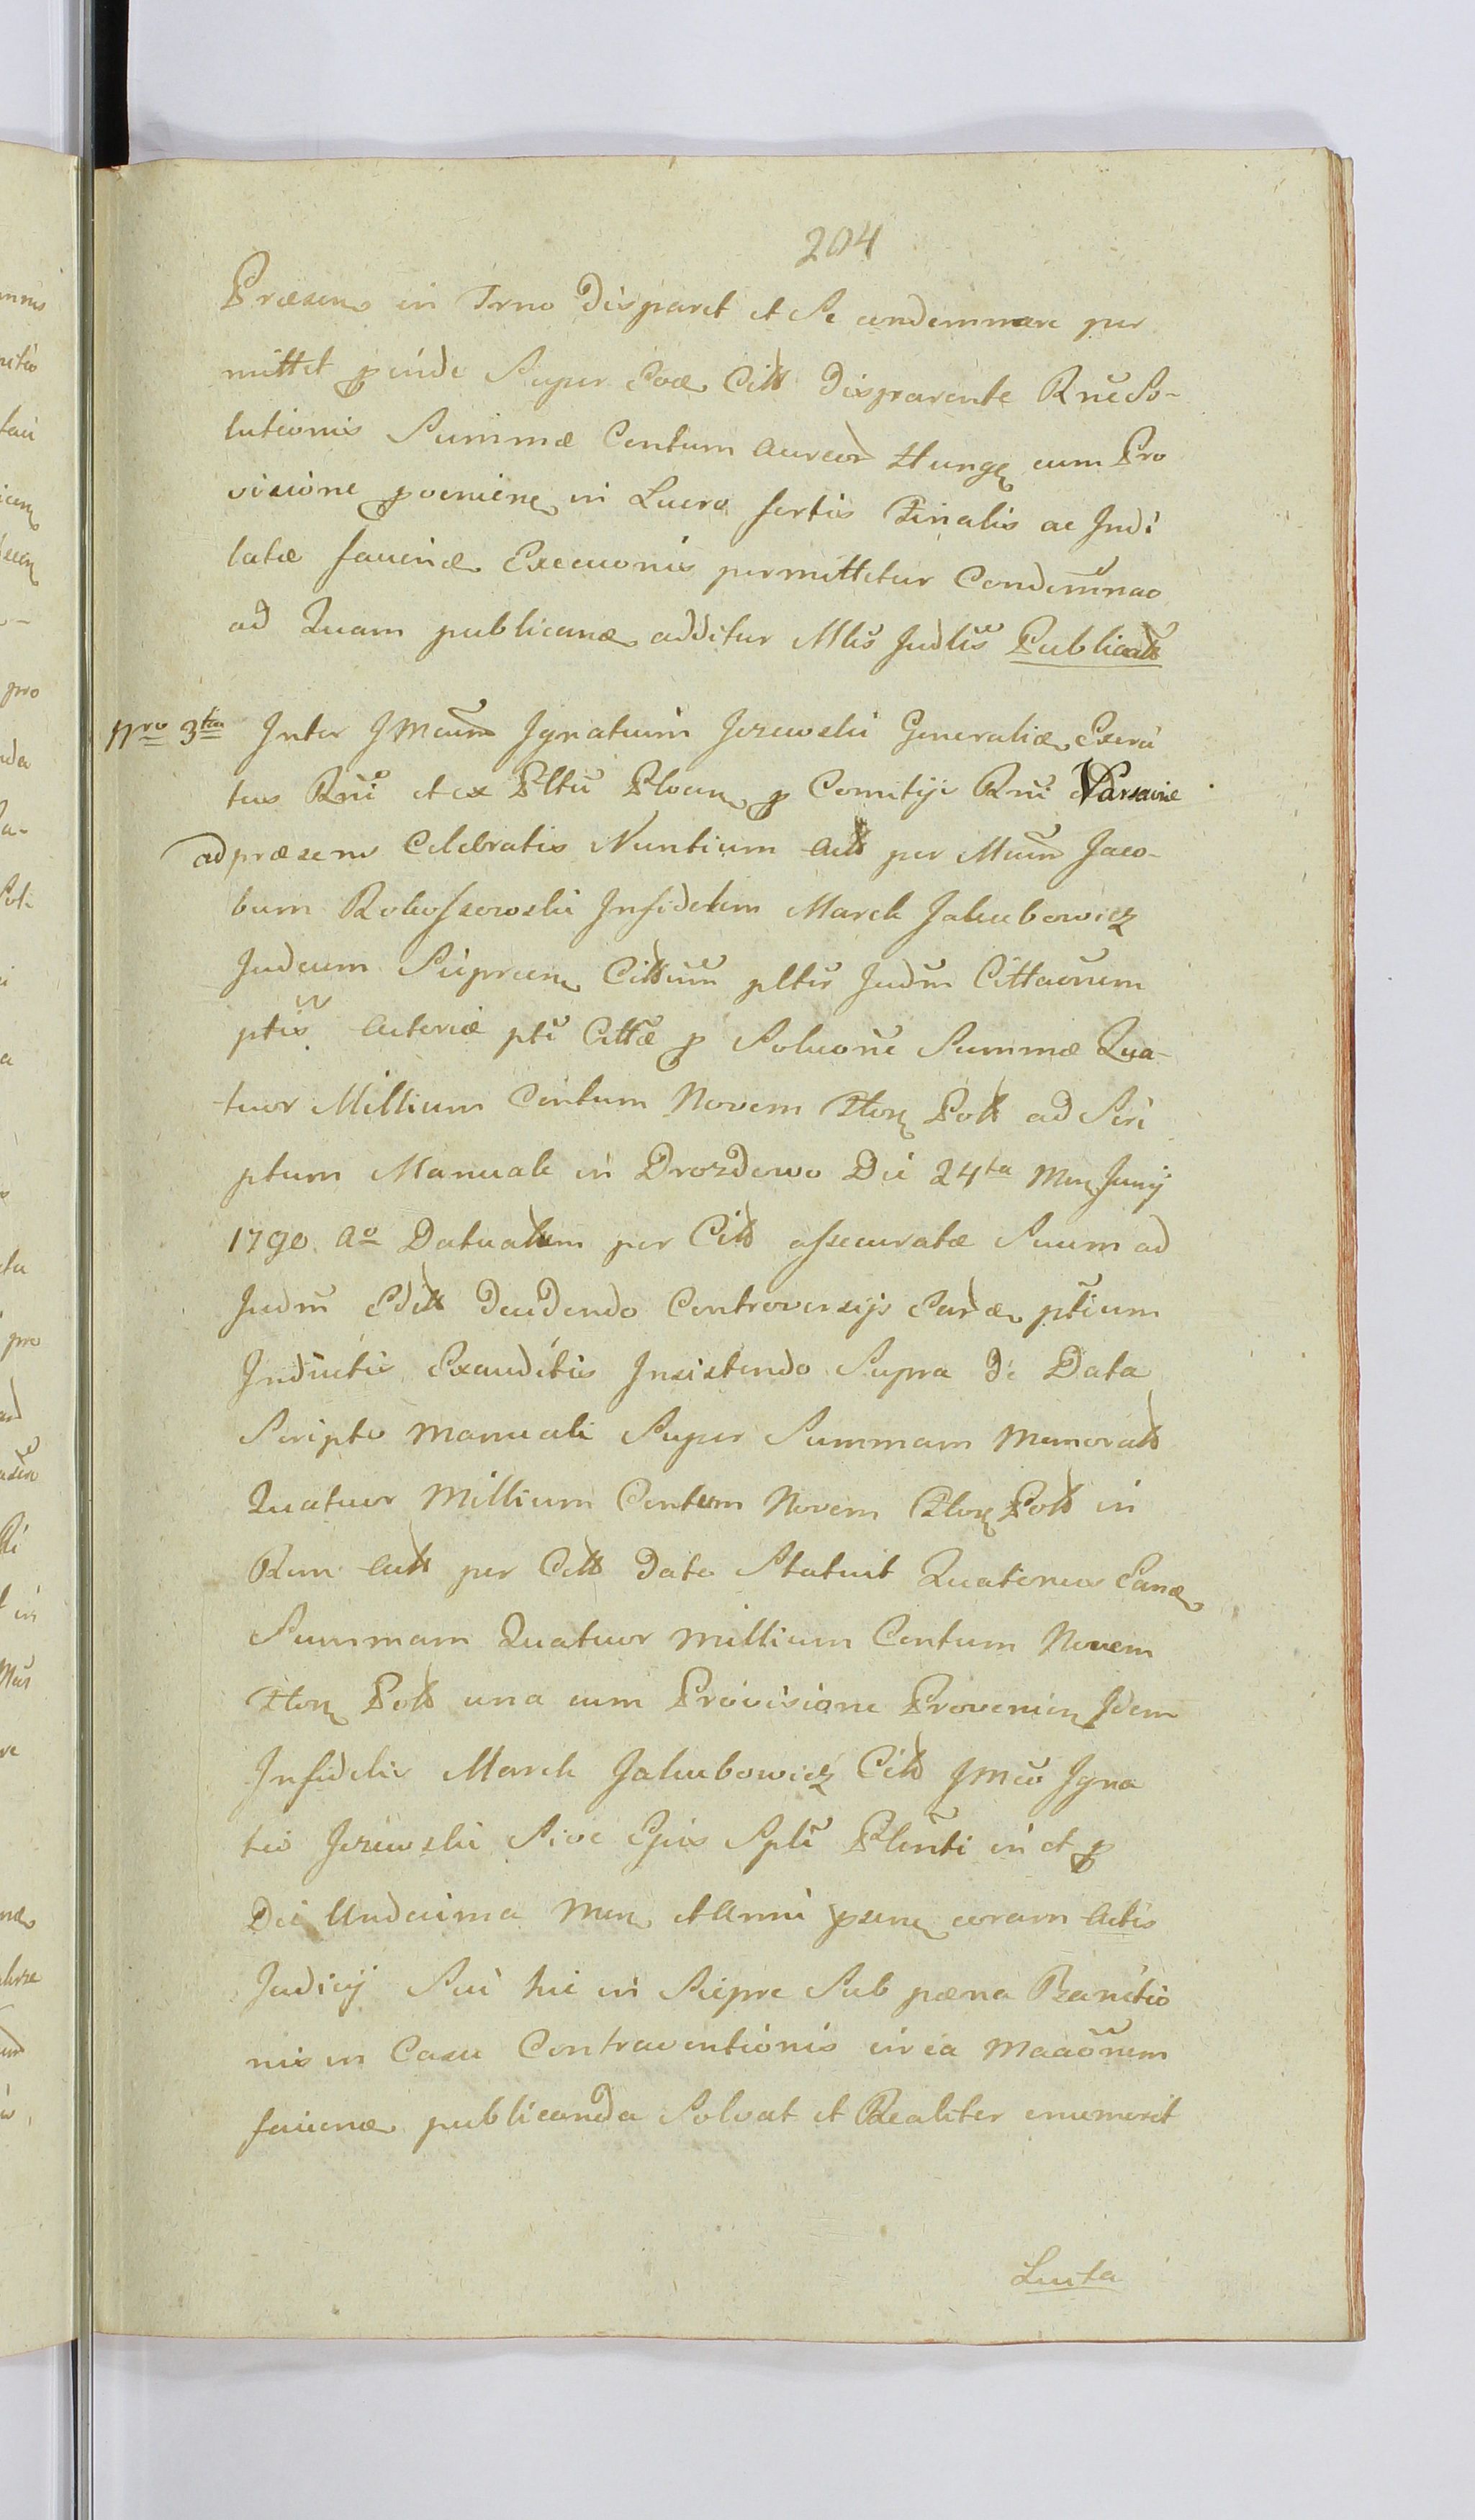 204
Præsens in Trno disparet et Se condemnare per
mittet p inde Super Eoa Citt disparente Rne So-
lutionis Summæ Centum aureor Hung cum Pro
visione pveniene in Lucro sortis Finalis ac Indi
latæ faciendæ Execuonis permittetur Condemnao
ad Quam publicanæ additur Mlis Judlis Publicatt
Nro 3tia Inter JMcum Ignatium Jezewski Generaliæ Exerci
tus Rni et ex Pltu Plocen p Comitijs Rni Varsaviæ
ad præsens Celebratis Nuntium Act per Mcum Jaco-
bum Rokossowski Infidelem Marek Jakubowicz
Judeum Sieprcen Cittum pltis Judm Cittaonem
ptis Actoriæ pti Cittæ p Soluone Summæ Qua-
tuor Millium Centum Novem Flor Poll ad Scri
ptum Manuale in Drozdowo Die 24ta Men Junij
1790 Ao Datuatum per Citt assecuratæ Suum ad
Judm Edit decidendo Controversijs Earæ ptium
Inductis Exauditis Insistendo Supra de Data
Scripto Manuali Super Summam Memoratt
Quatuor Millium Centum Novem Flor Poll in
Rem Act per Citt dato Statuit Quatenus Eanæ
Summam Quatuor Millium Centum Novem
Flor Poll una cum Provisione Provenien Idem
Infidelis Marek Jakubowicz Citt JMco Igna
tio Jezewski Sive Ejus Spli Plenti in et p
Die Undecima Men et Anni psen coram Actis
Judicij Sui hic in Sieprc Sub pæna Banitio
nis in Casu Contraventionis circa Maaonem
facienæ publicanda Solvat et Realiter enumeret
Luita